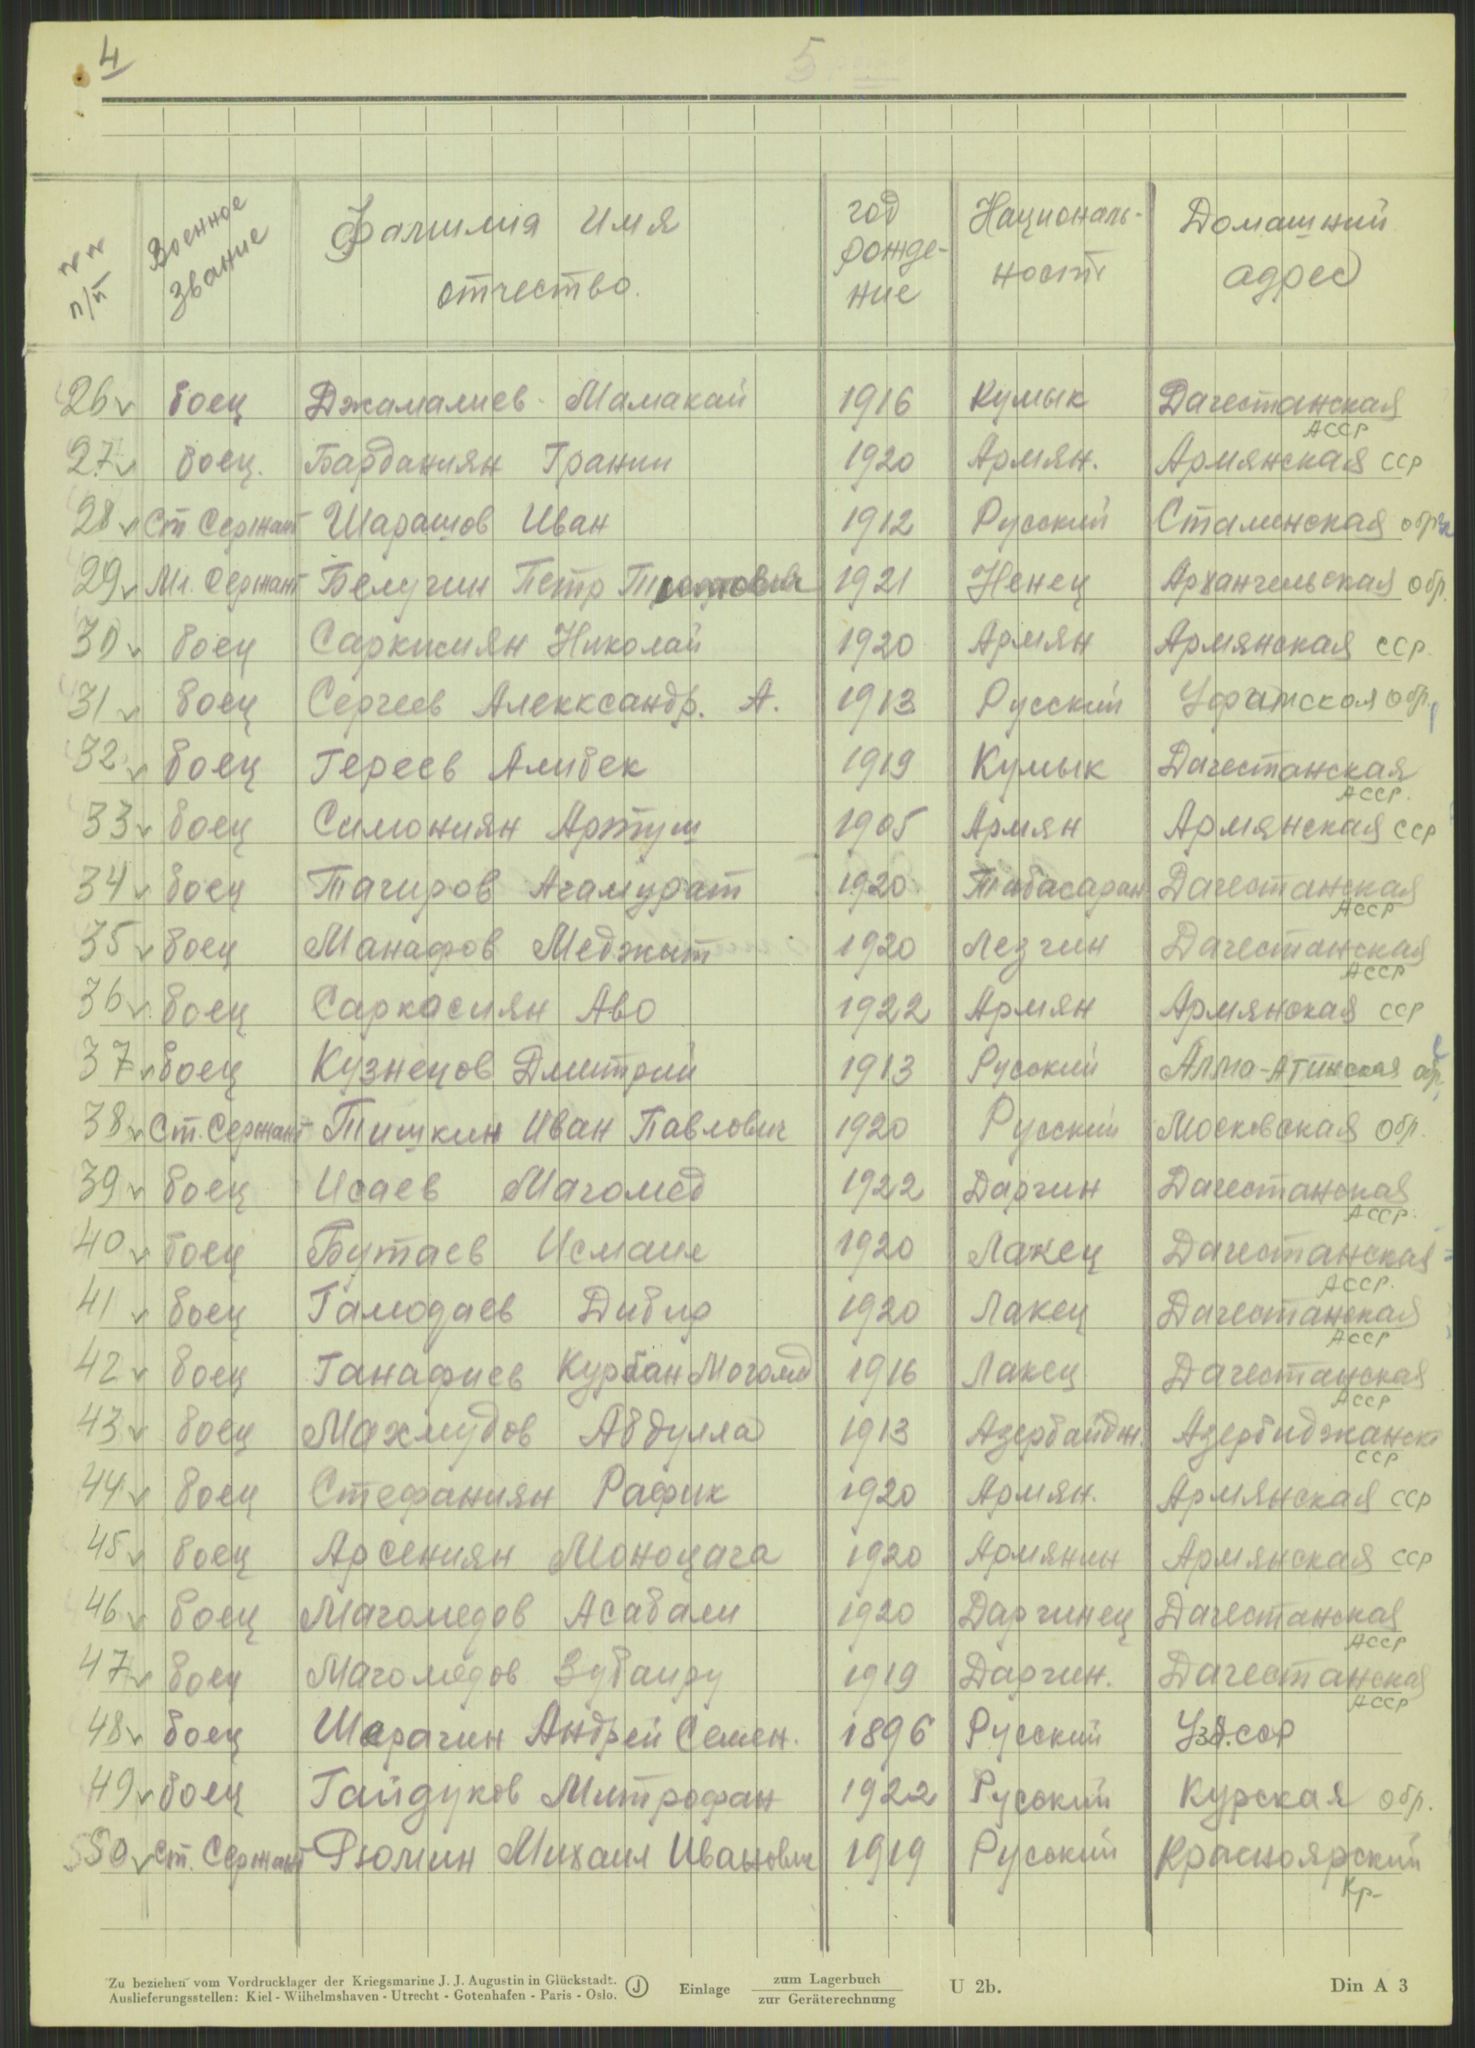 4
5
№№ п/п Военное звание Фамилия Имя отчество. год рожде-ние Националь-ность Домашний адрес
26 боец Джамалиев Мамакай 1916 Кумык Дагестанская АССР
27 боец. Барданиян Грании 1920 Армян. Армянская ССР
28 Ст Сержант Шарашов Иван 1912 Русский Сталинская обр
29 Мл. Сержант Белугин Петр 1921 Ненец Архангельская Обр.
30 боец Саркисиян Николай 1920 Армян Армянская ССР.
31 боец Сергеев Алекксандр. А. 1913 Русский Уфатская Обр.
32 боец Гереев Алибек 1919 Кумык Дагестанская АССР.
33 боец Симониян Артуш 1905 Армян Армянская ССР
34 боец Тагиров Агамурат 1920 Табасаран Дагестанская АССР
35 боец Манафов Меджит 1920 Лезгин Дагестанская АССР
36 боец Саркасиян Аво 1922 Армян Армянская ССР
37 боец Кузнецов Дмитрий 1913 Русский Алма-Атинская обр.
38 Ст. Сержант Тишкин Иван Павлович 1920 Русский Московская Обр.
39 боец Исаев Магомед 1922 Даргин Дагестанская АССР.
40 боец Бутаев Исмаил 1920 Лакец Дагестанская АССР.
41 боец Гамодаев Дибир 1920 Лакец Дагестанская АССР
42 боец Ганафиев Курбан Могомд 1916 Лакец Дагестанская АССР
43 боец Махмудов Абдулла 1913 Азербайдж. Азербиджанск ССР
44 боец Стефаниян Рафик 1920 Армян. Армянская ССР
45 боец Арсениян Моноцага 1920 Армянин Армянская ССР
46 боец Магомедов Асабали 1920 Даргинец Дагестанская АССР
47 боец Магомедов Зубаиру 1919 Даргин. Дагестанская АССР
48 боец Шарагин Андрей Семен. 1896 Русский Узб.ССР
49 боец Гайдуков Митрофан 1922 Русский Курская обр.
50 Ст. Сержант Рюмин Михаил Иванович 1919 Русский Красноярский Кр-
Zu beziehen vom Vordrucklager der Kriegsmarine J. J. Augustin in Glückstadt.
Auslieferungsstellen: Kiel - Wilhelmshaven - Utrecht - Gotenhafen - Paris - Oslo.
J
Einlage zum Lagerbuch
zur Geräterechnung
U 2b.
Din A 3